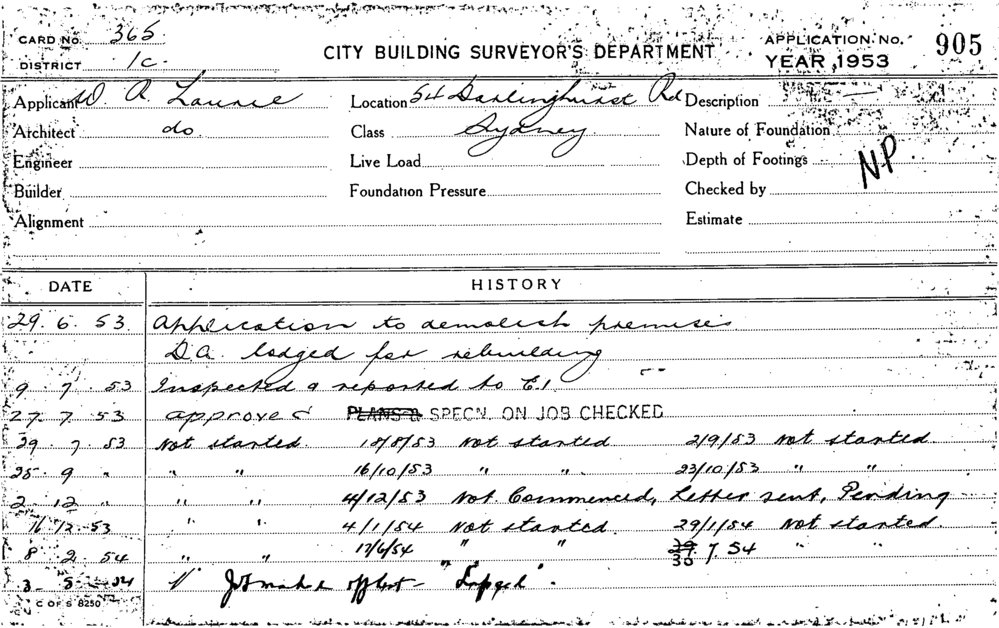 CARD No. 365 CITY BUILDING SURVEYOR'S DEPARTMENT APPLICATION No. 905
DISTRICT 1c. YEAR, 1953
Applicant W. A. Laurie Location 54 Darlinghurst Rd Description
Architect do Class Sydney Nature of Foundation
Engineer Live Load Depth of Footings NP
Builder Foundation Pressure Checked by
Alignment Estimate
DATE HISTORY
29. 6. 53 Application to demolish premises
D.A. lodged for rebuilding
9 7 53 Inspected & reported to C.I.
27. 7. 53 approved PLANS & SPECN. ON JOB CHECKED
29 7 53 Not started. 18/8/53 Not started 2/9/53 Not started
25 9 " " " 16/10/53 " " 23/10/53 " "
2 12 " " " 4/12/53 Not Commenced, Letter sent, Pending
16 12 53 " " 4/1/54 Not started. 29/1/54 Not started.
8 2 54 " " 17/6/54 " " 7 54 " "
3 5 54 " Job marked off list - "Lapsed".
C OF S 8250